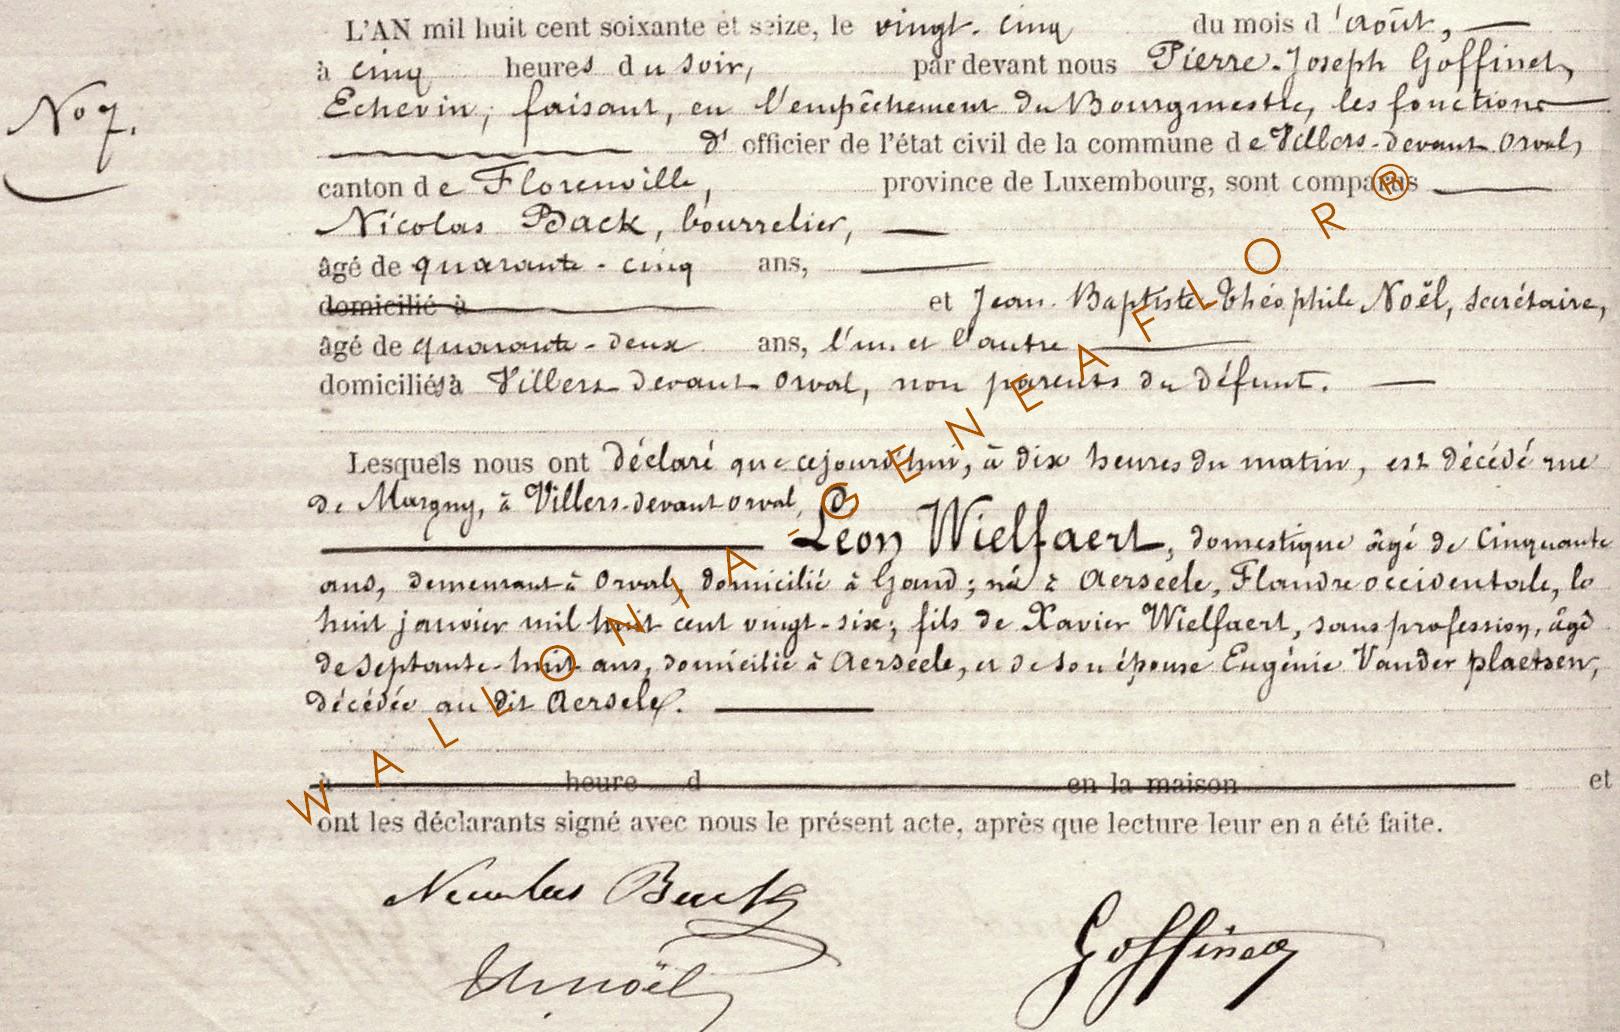 L'AN mil huit cent soixante et seize, le vingt-cinq du mois d'août,
à cinq heures du soir, par devant nous Pierre-Joseph Goffinet,
No 7.
Echevin, faisant, en l'empêchement du Bourgmestre, les fonctions
d' officier de l'état civil de la commune de Villers-devant-Orval,
canton de Florenville, province de Luxembourg, sont comparus
Nicolas Back, bourrelier,
âgé de quarante-cinq ans,
domicilié à et Jean-Baptiste Théophile Noël, secrétaire,
âgé de quarante-deux ans, l'un et l'autre
domiciliés à Villers-devant-Orval, non parents du défunt.
Lesquels nous ont déclaré que cejourd'hui, à dix heures du matin, est décédé rue
de Margny, à Villers-devant-Orval,
Léon Wielfaert, domestique âgé de Cinquante
ans, demeurant à Orval, domicilié à Gand; né à Aerseele, Flandre occidentale, le
huit janvier mil huit cent vingt-six; fils de Xavier Wielfaert, sans profession, âgé
de Septante-huit ans, domicilié à Aerseele, et de son épouse Eugénie Vander plaetsen,
décédée au dit Aersele.
à heure d en la maison et
ont les déclarants signé avec nous le présent acte, après que lecture leur en a été faite.
Nicolas Back
Goffinet
Thnoël
WALLONIA-GENEAFLOR®